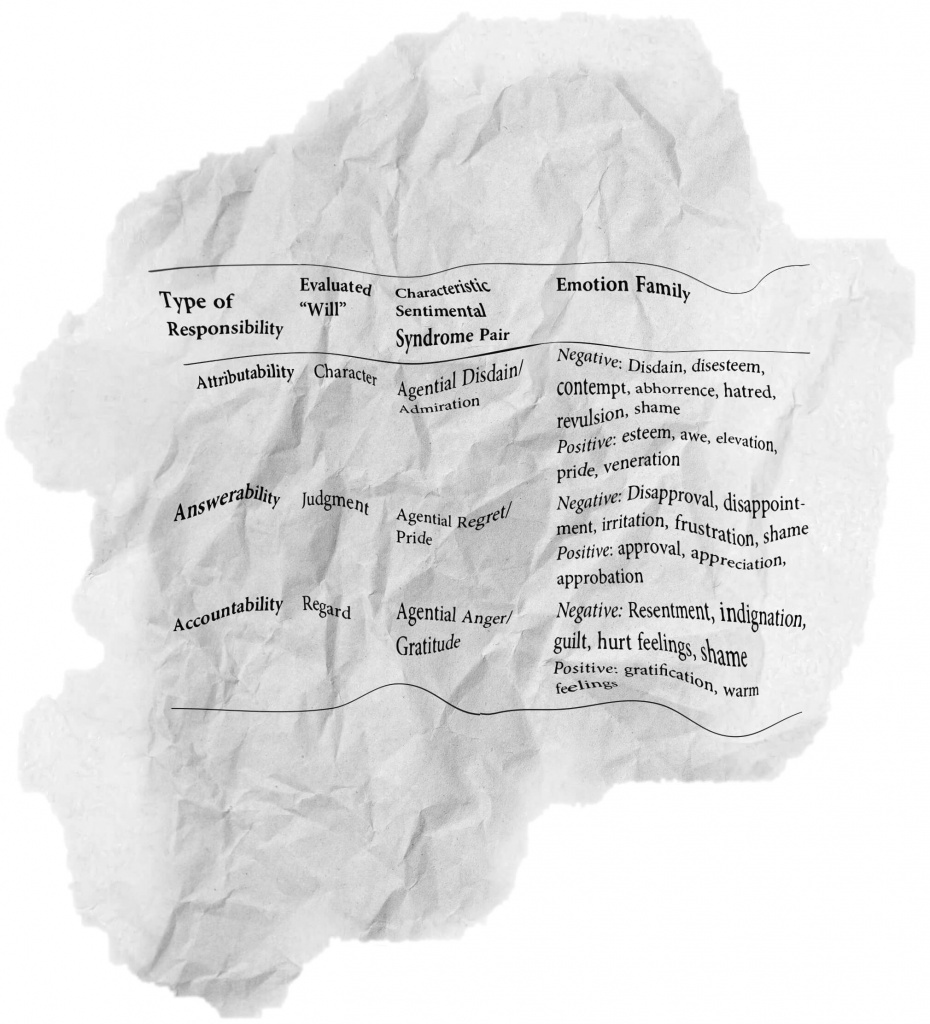 Type of Responsibility
Evaluated "Will"
Characteristic Sentimental Syndrome Pair
Emotion Family
Attributability
Character
Agential Disdain/
Admiration
Negative: Disdain, disesteem,
contempt, abhorrence, hatred,
revulsion, shame
Positive: esteem, awe, elevation,
pride, veneration
Answerability
Judgment
Agential Regret/
Pride
Negative: Disapproval, disappoint-
ment, irritation, frustration, shame
Positive: approval, appreciation,
approbation
Accountability
Regard
Agential Anger/
Gratitude
Negative: Resentment, indignation,
guilt, hurt feelings, shame
Positive: gratification, warm
feelings